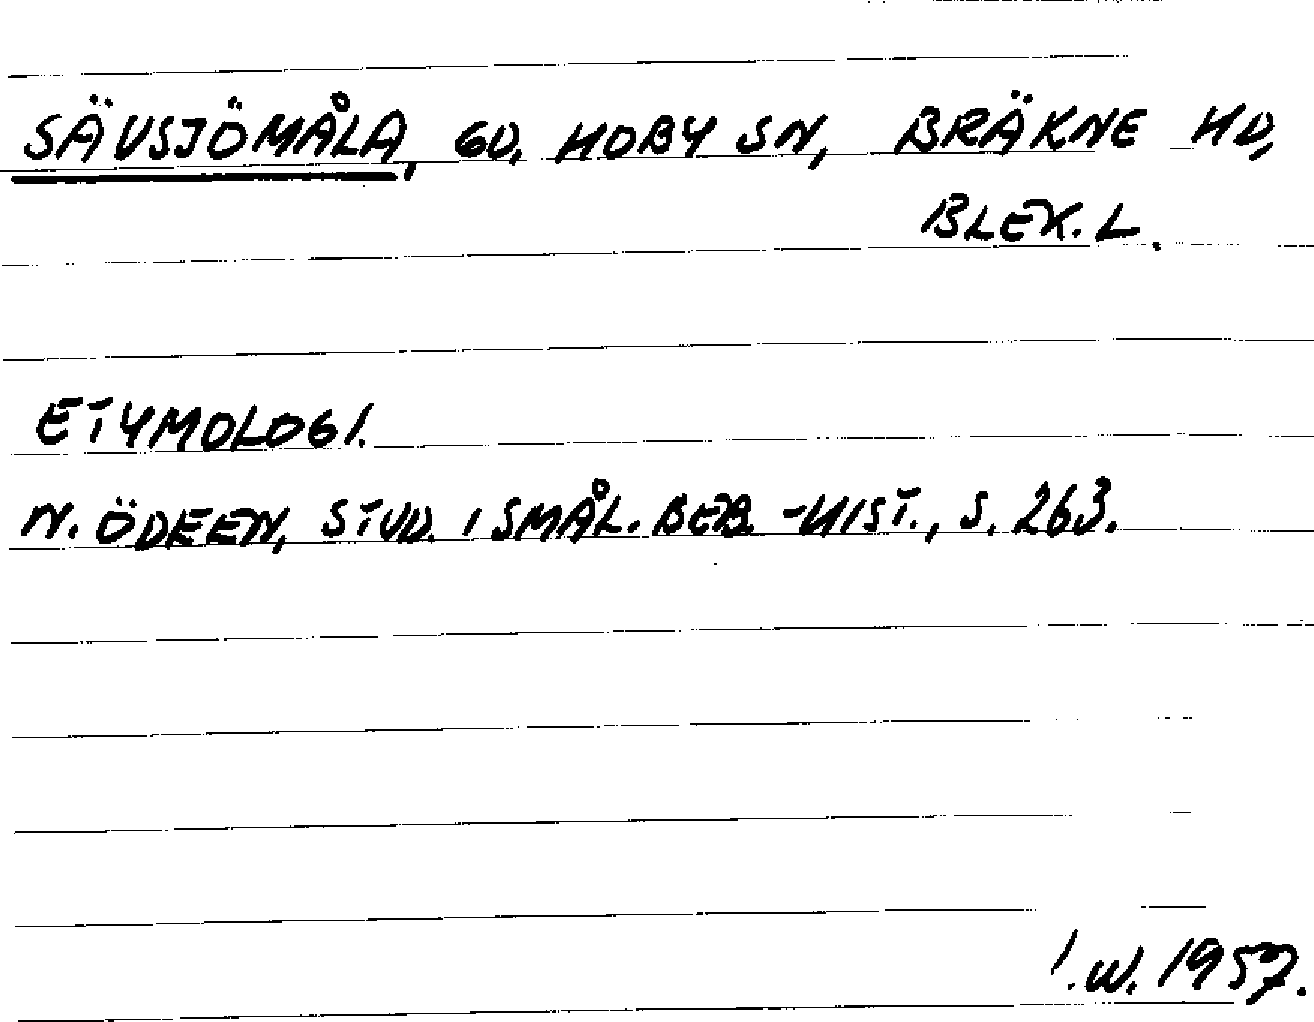 SÄVSJÖMÅLA, GD, HOBY SN, BRÄKNE HD,
BLEK. L.
ETYMOLOGI.
N. ÖDEEN, STUD. I SMÅL. BEB.-HIST., S. 263.
I.W. 1957.